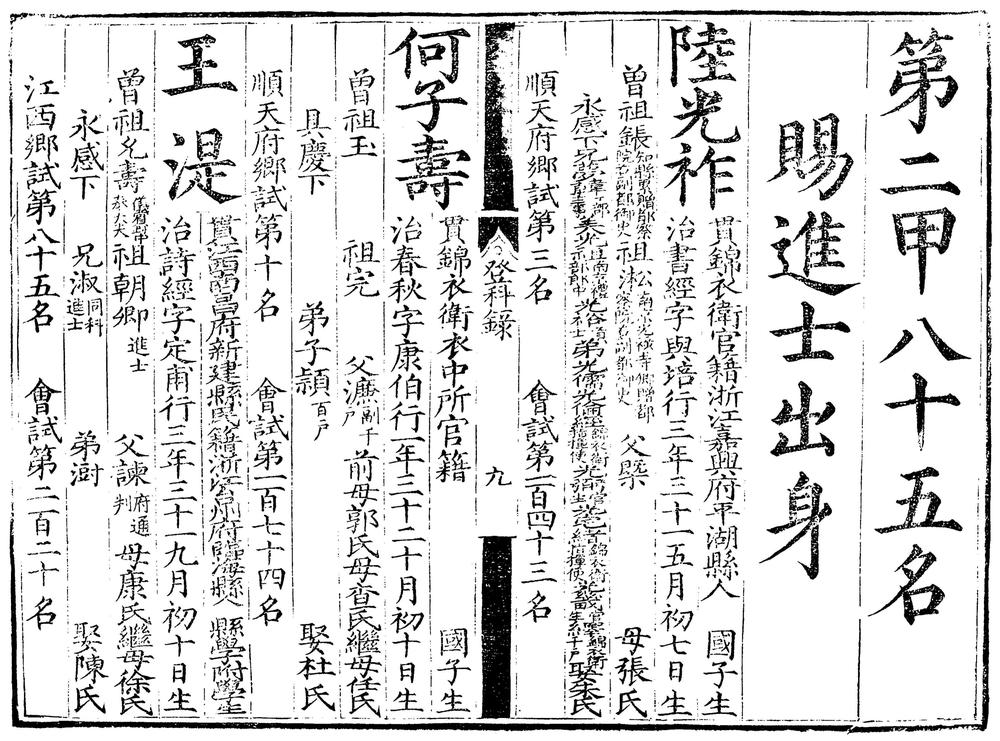 第二甲八十五名
賜進士出身
陸光祚
貫錦衣衛官籍浙江嘉興府平湖縣人 國子生
治書經字與培行三年三十一五月初七日生
曾祖鋹 祖淞 父杲 母張氏
永感下 娶朱氏
順天府鄉試第三名 會試第一百四十三名
登科錄 九
何子壽
貫錦衣衛衣中所官籍 國子生
治春秋字康伯行一年三十二十月初十日生
曾祖玉 祖完 父濂副千戶 前母郭氏母查氏繼母任氏
具慶下 弟子頴百戶 娶杜氏
順天府鄉試第十名 會試第一百七十四名
王湜
貫江西南昌府新建縣民籍浙江台州府臨海縣人 縣學附學生
治詩經字定甫行三年三十一九月初十日生
曾祖允壽 祖朝卿進士 父諫府通判 母康氏繼母徐氏
永感下 兄淑同科進士 弟澍 娶陳氏
江西鄉試第八十五名 會試第二百二十名